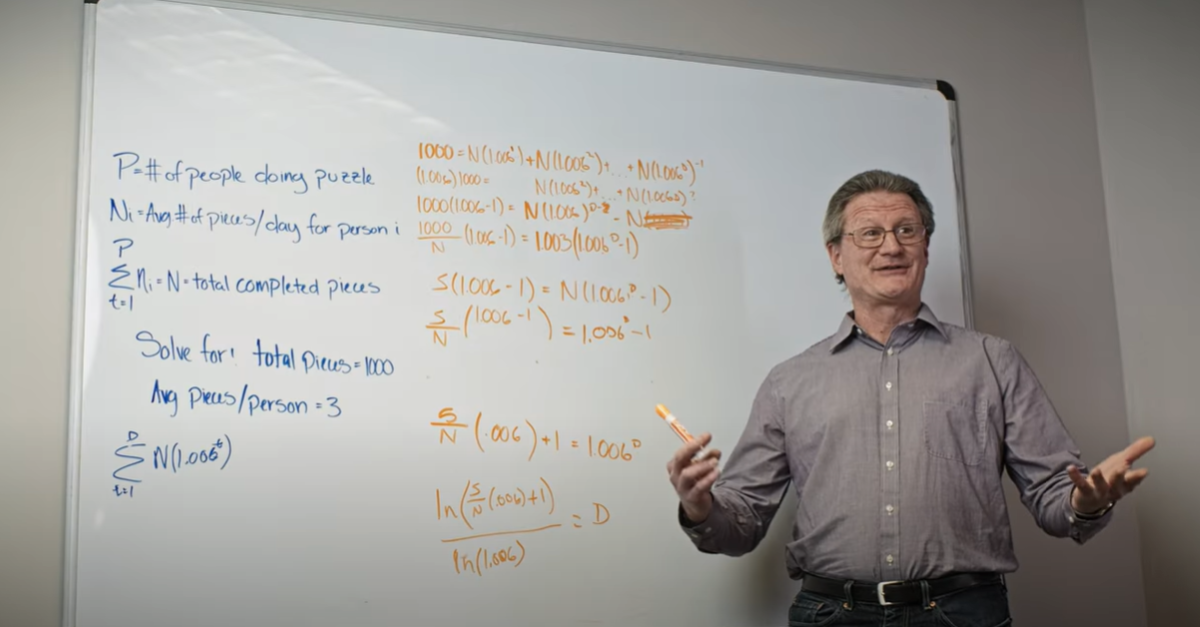 P=# of people doing puzzle
Ni=Avg # of pieces/day for person i
P
∑ni=N=total completed pieces
t=1
Solve for: total pieces=1000
Avg pieces/person=3
D
∑ N(1.006^t)
t=1
1000=N(1.006¹)+N(1.006²)+...+N(1.006^D)^-1
(1.006)1000= N(1.006²)+...+N(1.006
1000(1.006-1)= N(1.006) - N
1000/N (1.006-1)=1.003(1.006^D-1)
S(1.006-1)=N(1.006^D-1)
S/N (1.006-1)=1.006^D-1
S/N (.006)+1=1.006^D
ln(S/N(.006)+1)/ln(1.006) = D